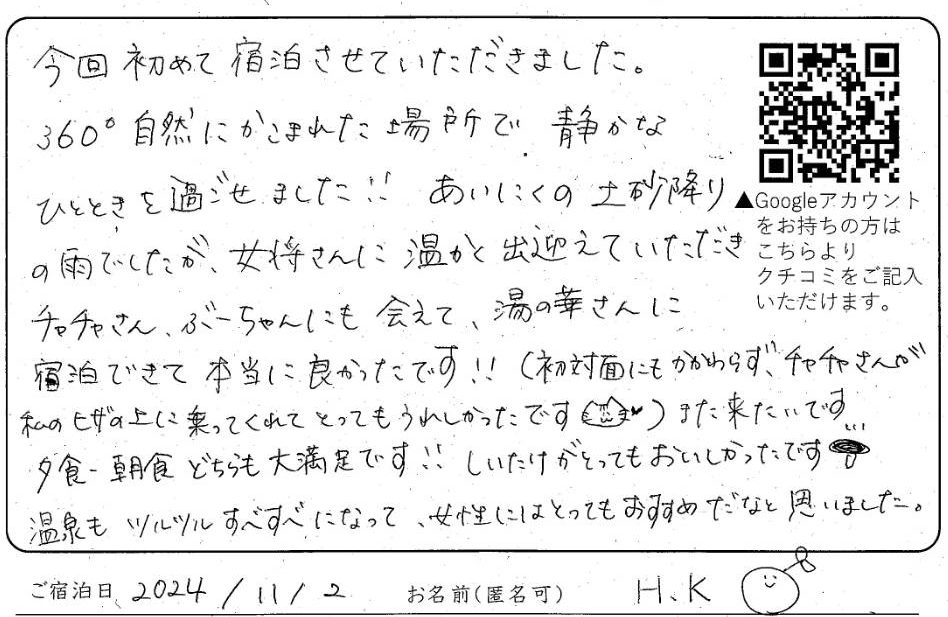 今回初めて宿泊させていただきました。
360°自然にかこまれた場所で 静かな
ひとときを過ごせました!! あいにくの土砂降り
の雨でしたが、女将さんに温かく出迎えていただき
チャチャさん、ぶーちゃんにも会えて、湯の華さんに
宿泊できて本当に良かったです!!(初対面にもかかわらず、チャチャさんが
私のヒザの上に乗ってくれてとってもうれしかったです)また来たいです…
夕食・朝食どちらも大満足です!! しいたけがとってもおいしかったです
温泉もツルツルすべすべになって、女性にはとってもおすすめだなと思いました。
▲Googleアカウント
をお持ちの方は
こちらより
クチコミをご記入
いただけます。
ご宿泊日 2024/11/2 お名前(匿名可) H.K